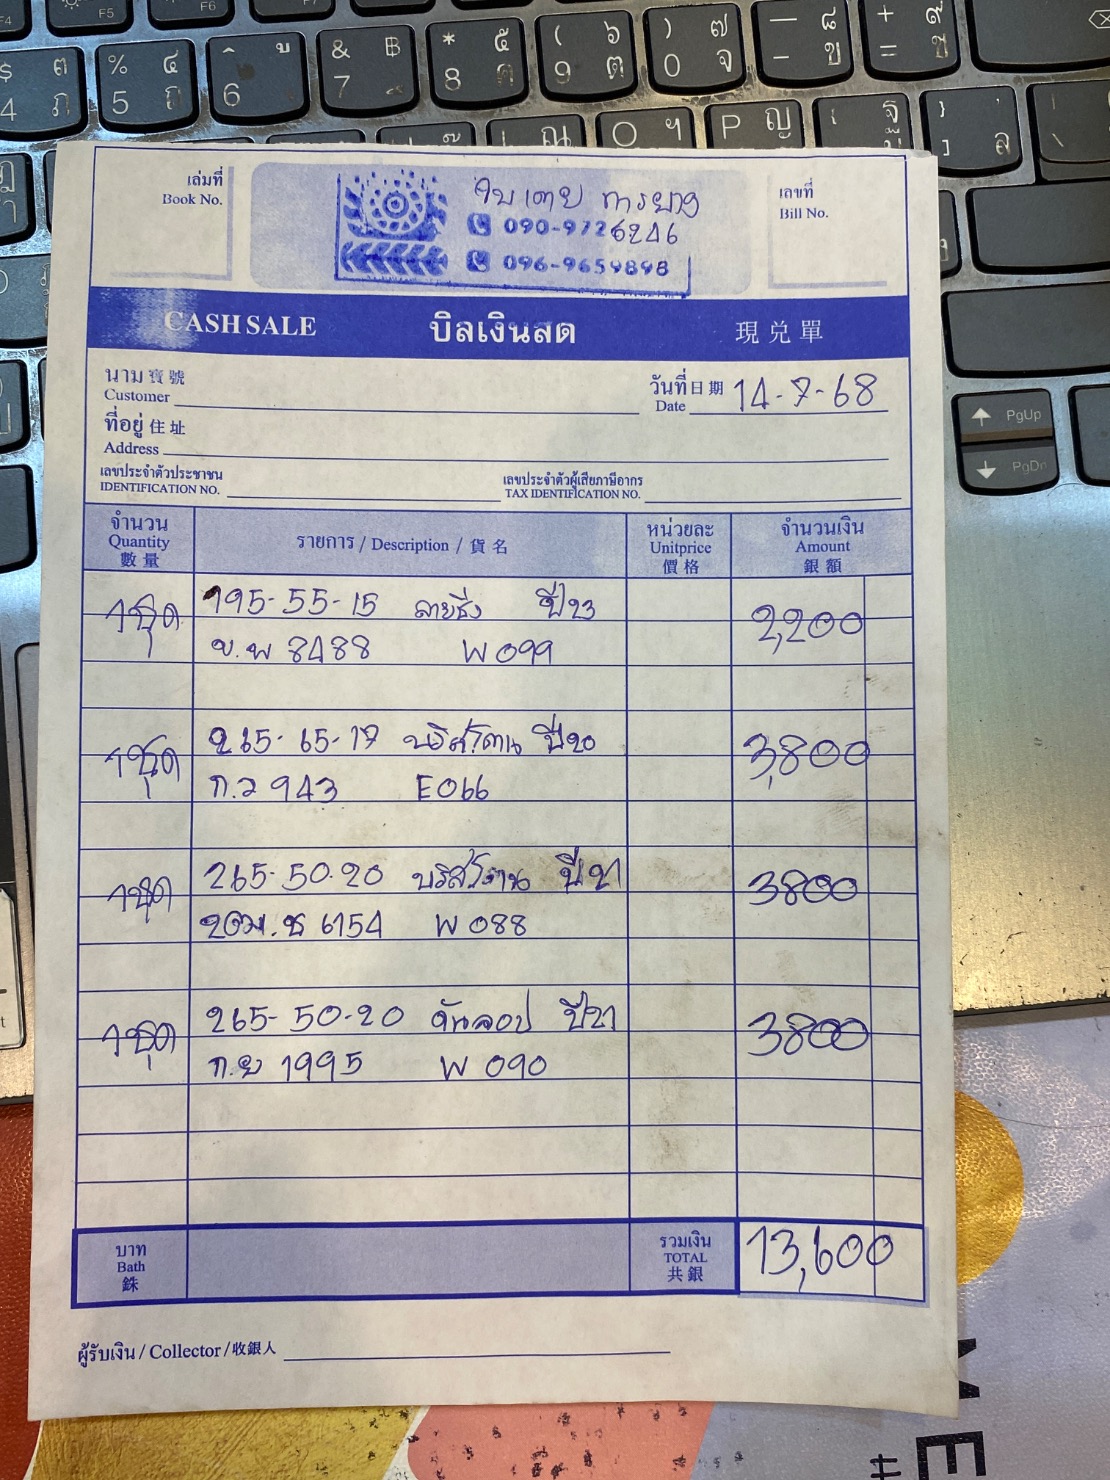 F5
F6
F7
$ ๓
4 ภ
% ๔
5 ถ
^ ู
6 ึ
& ฿
7 ึ
* ๕
8 ค
( ๖
9 ต
) ๗
0 จ
— ๘
- ข
+ ๙
= ช
O ฯ
P ญ
ฐ
ล
PgUp
PgDn
เล่มที่
Book No.
ใบเตย การยาง
090-9726246
096-9659898
เลขที่
Bill No.
CASH SALE บิลเงินสด 現兑單
นาม 寶號
Customer
วันที่ 日期 14-7-68
Date
ที่อยู่ 住址
Address
เลขประจำตัวประชาชน
IDENTIFICATION NO.
เลขประจำตัวผู้เสียภาษีอากร
TAX IDENTIFICATION NO.
จำนวน
Quantity
數量
รายการ / Description / 貨名
หน่วยละ
Unitprice
價格
จำนวนเงิน
Amount
銀額
1ชุด 195-55-15 ปี23 2,200
ข.พ 8488 W099
1ชุด 265-65-17 บริสโตน ปี20 3,800
ก.ว 943 E066
1ชุด 265-50-20 บริสโตน ปี21 3800
6154 W 088
1ชุด 265-50-20 ดันลอป ปี21 3800
ก.ย 1995 W 090
บาท
Bath
銖
รวมเงิน
TOTAL
共銀
13,600
ผู้รับเงิน / Collector / 收銀人
ME
#